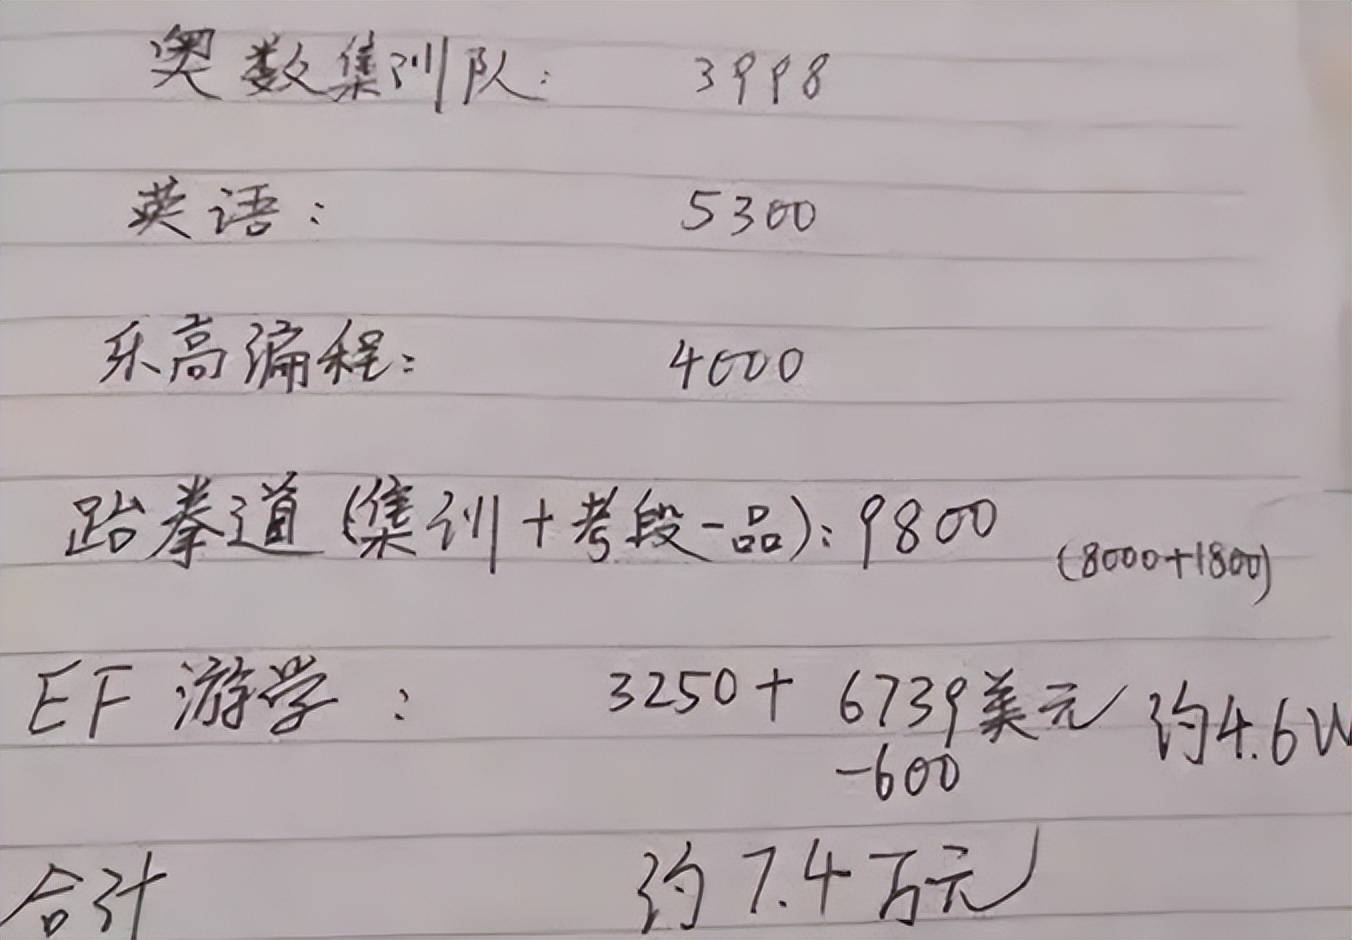 奥数集训队: 3998
英语: 5300
乐高编程: 4000
跆拳道(集训+考段一品): 9800
(8000+1800)
EF 游学: 3250+ 6739美元 约4.6W
-600
合计 约7.4万元